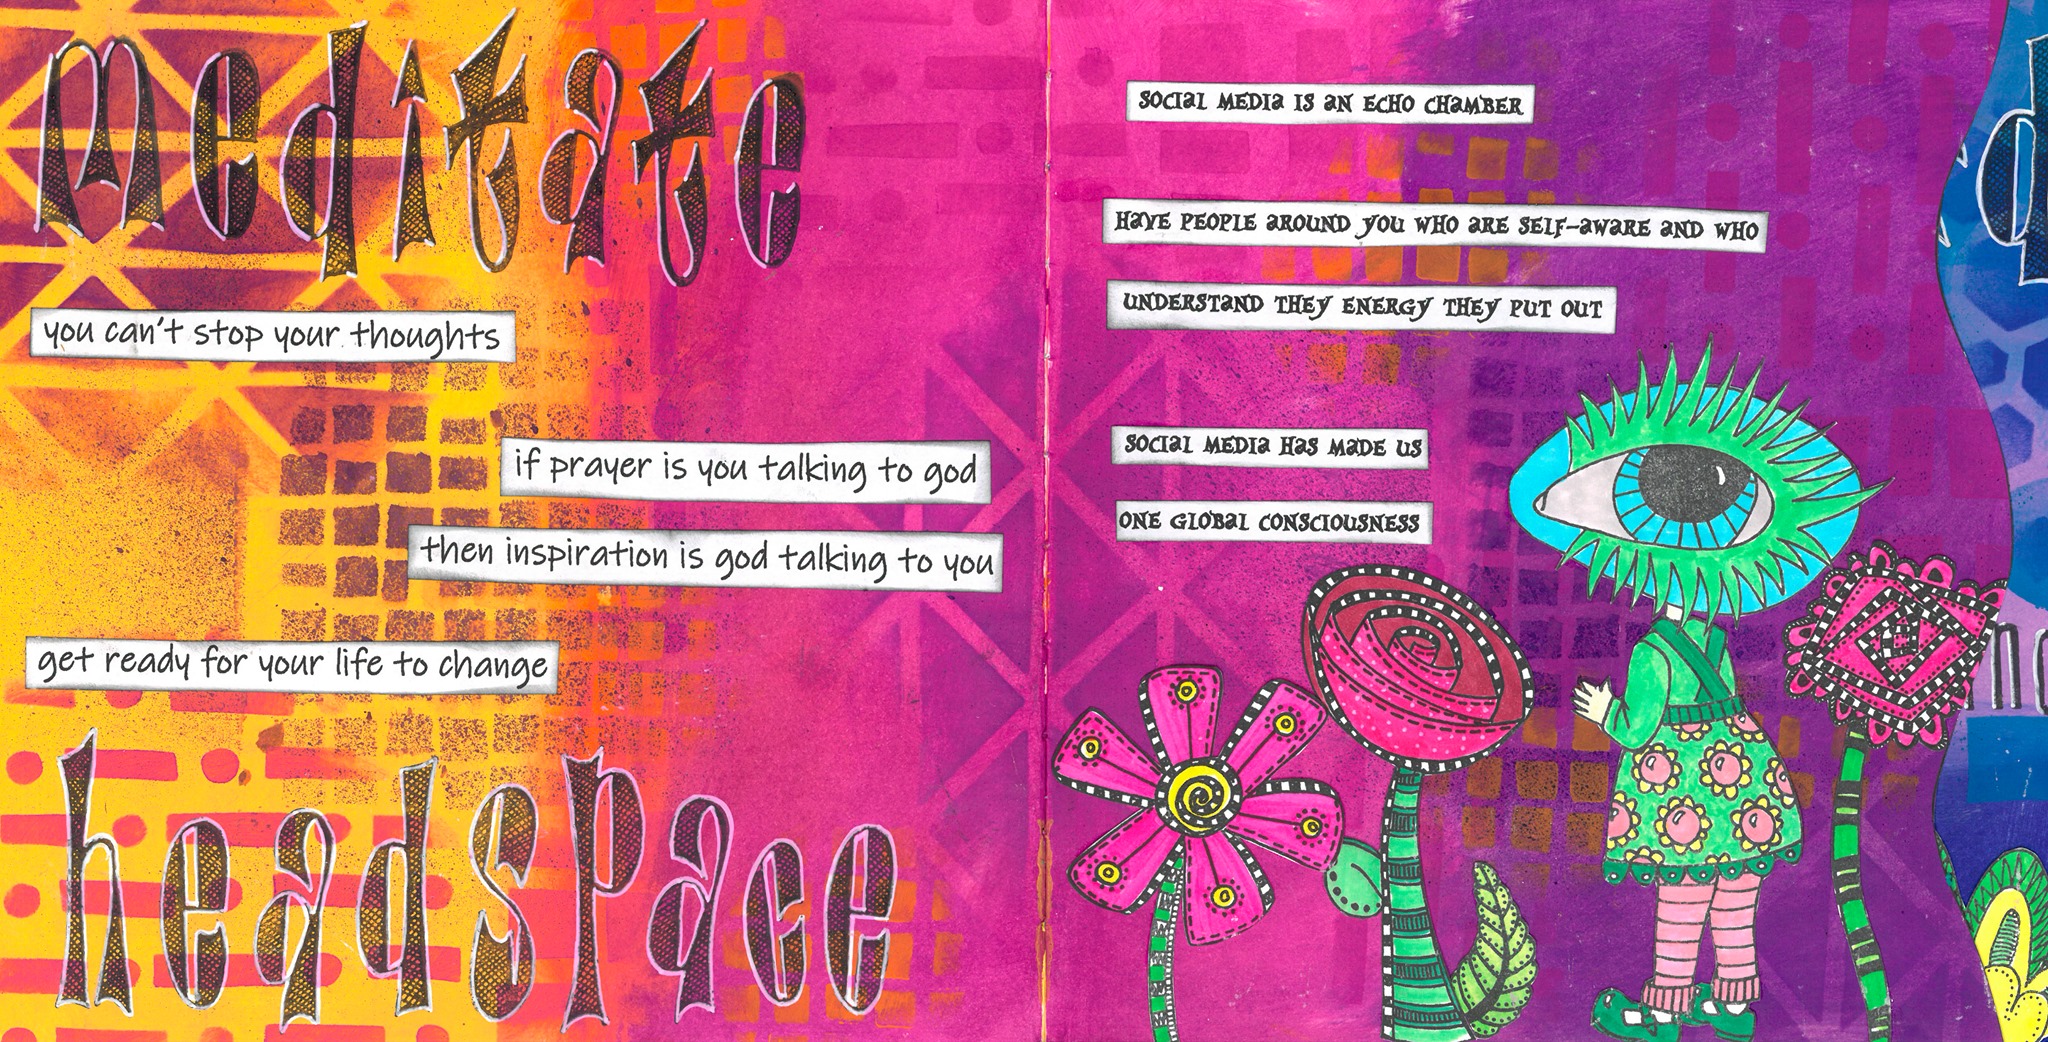 meditate
you can't stop your thoughts
if prayer is you talking to god
then inspiration is god talking to you
get ready for your life to change
headspace
SOCIAL MEDIA IS AN ECHO CHAMBER
HAVE PEOPLE AROUND YOU WHO ARE SELF-AWARE AND WHO
UNDERSTAND THEY ENERGY THEY PUT OUT
SOCIAL MEDIA HAS MADE US
ONE GLOBAL CONSCIOUSNESS